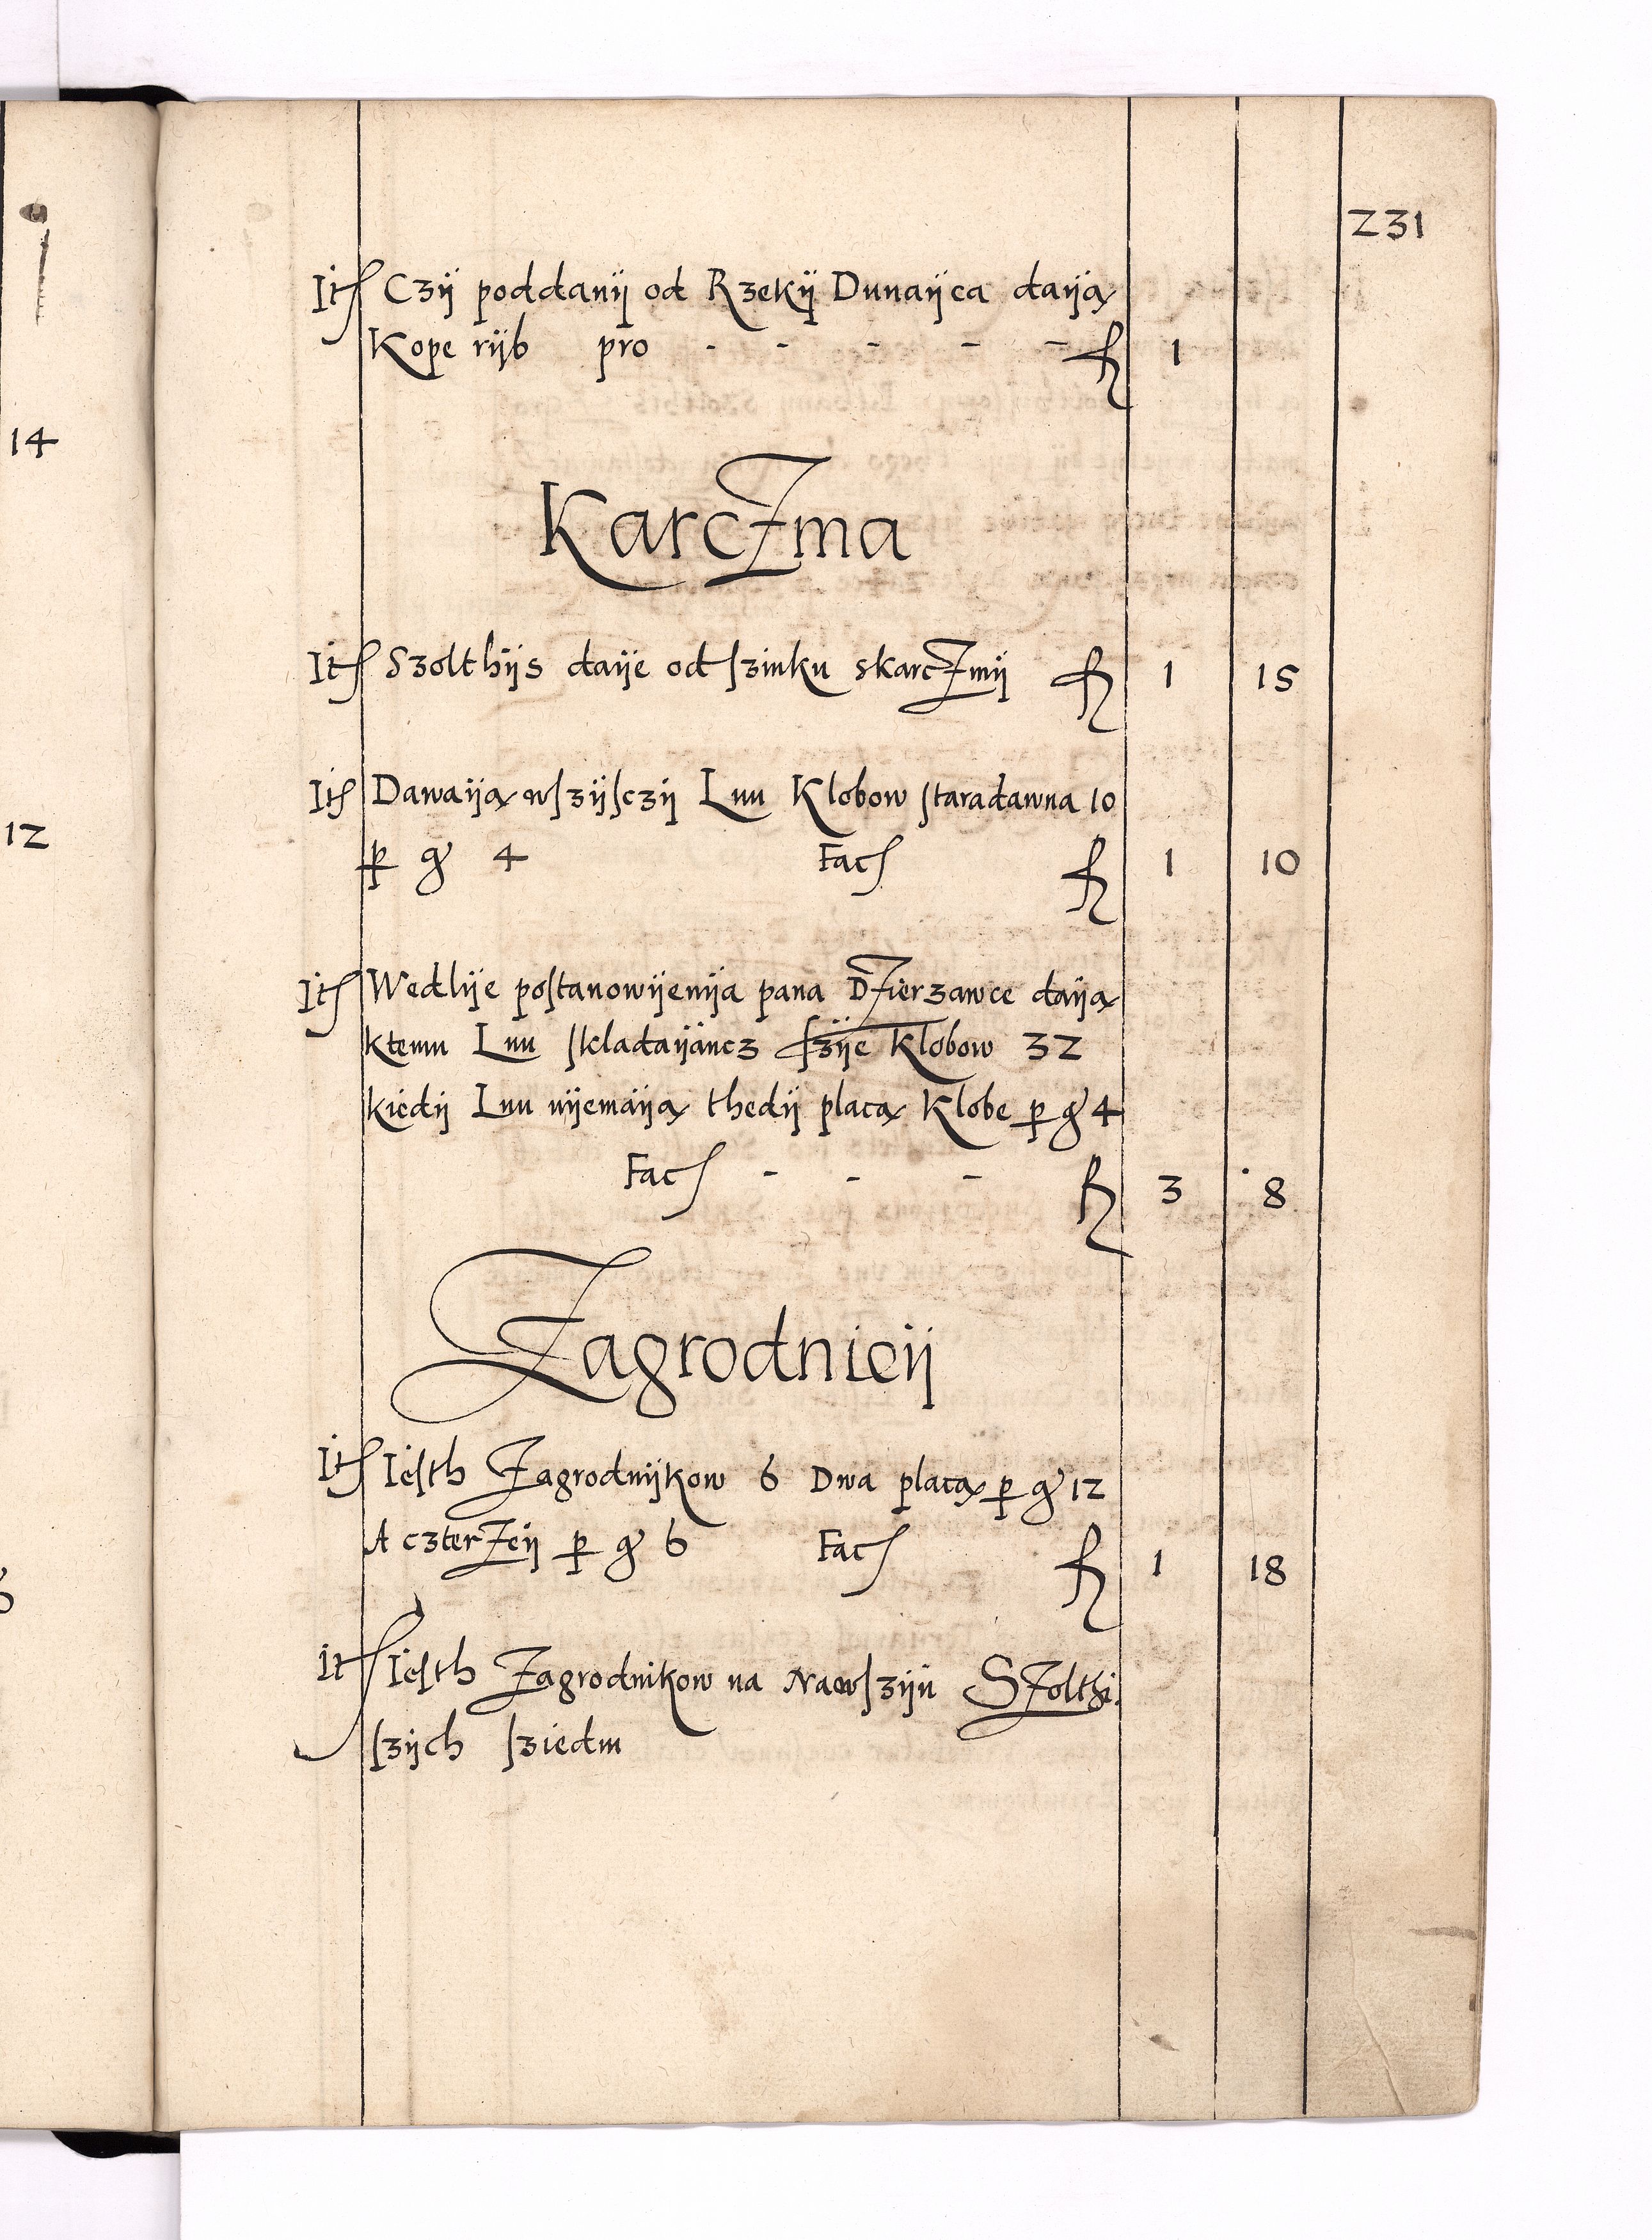 231
It Czÿ poddanÿ od Rzekÿ Dunaÿca daÿą
Kope rÿb pro - - - - - fl 1
KarcZma
It Szolthÿs daÿe od ſzinku skarcZmÿ fl 1 15
It Dawaÿą wſzÿſczÿ Lnu Klobow ſtaradawna 10
p gͬ 4 Fac fl 1 10
It Wedlÿe poſtanowÿenÿa pana DZierzawce daÿą
ktemu Lnu ſkladaÿancz ſzÿe Klobow 32
kiedÿ Lnu nÿemaÿą thedÿ placą Klobe p gͬ 4
Fac - - - fl 3 8
Zagrodnicÿ
It Ieſth Zagrodnÿkow 6 Dwa placą p gͬ 12
A czterZeÿ p gͬ 6 Fac fl 1 18
It Ieſth Zagrodnikow na Nawſzÿu SZolthi
ſzÿch ſziedm
14
12